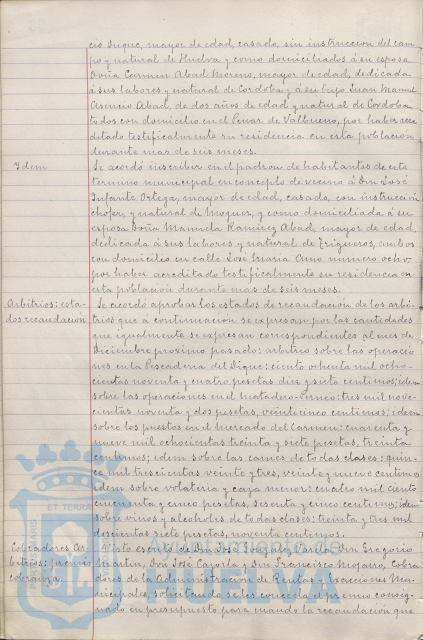 cio Duque, mayor de edad, casado, sin instruccion del cam-
po y natural de Huelva y como domiciliados á su esposa
Doña Carmen Abad Moreno, mayor de edad, dedicada
á sus labores y natural de Cordoba y á su hijo Juan Manuel
Asencio Abad, de dos años de edad y natural de Cordoba
todos con domicilio en el Pinar de Valbueno, por haber acre
ditado testificalmente su residencia en esta poblacion
durante mas de seis meses.
Idem
Se acordó inscribir en el padron de habitantes de este
termino municipal en concepto de vecino á Don José
Infante Ortega, mayor de edad, casado, con instruccion
chofer, y natural de Moguer, y como domiciliada á su
esposa Doña Manuela Ramirez Abad, mayor de edad,
dedicada á sus labores y natural de Trigueros, ambos
con domicilio en calle José Maria Amo numero ocho,
por haber acreditado testificalmente su residencia en
esta poblacion durante mas de seis meses.
Arbitrios: esta-
dos recaudación
Se acordó aprobar los estados de recaudación de los arbi-
trios que á continuación se expresan por las cantidades
que igualmente se expresan correspondientes al mes de
Diciembre proximo pasado: arbitrio sobre las operacio
nes en la Pescaderia del Dique: ciento ochenta mil ocho-
cientas noventa y cuatro pesetas diez y siete centimos; idem
sobre las operaciones en el matadero-
tres mil nove-
cientas noventa y dos pesetas, veinticinco centimos; idem
sobre los puestos en el mercado del Carmen: cuarenta y
nueve mil ochocientas treinta y siete pesetas, treinta
centimos; idem sobre las carnes de todas clases: quin-
ce mil trescientas veinte y tres, veinte y nueve centimos
idem sobre volateria y caza menor: cuatro mil ciento
cincuenta y cinco pesetas, sesenta y cinco centimos; idem
sobre vinos y alcoholes de todas clases: treinta y tres mil
doscientas siete pesetas, noventa centimos.
Cobradores Ar-
bitrios: premio
cobranza.
Visto escrito de Don José Gonzalez Garcia, Don Gregorio
Martin, Don José Cazorla y Don Francisco Mojarro, Cobra
dores de la Administración de Rentas y Exacciones Mu-
nicipales, solicitando se les conceda el premio consig-
nado en presupuesto para cuando la recaudación que
ET TERRAE
MARIS